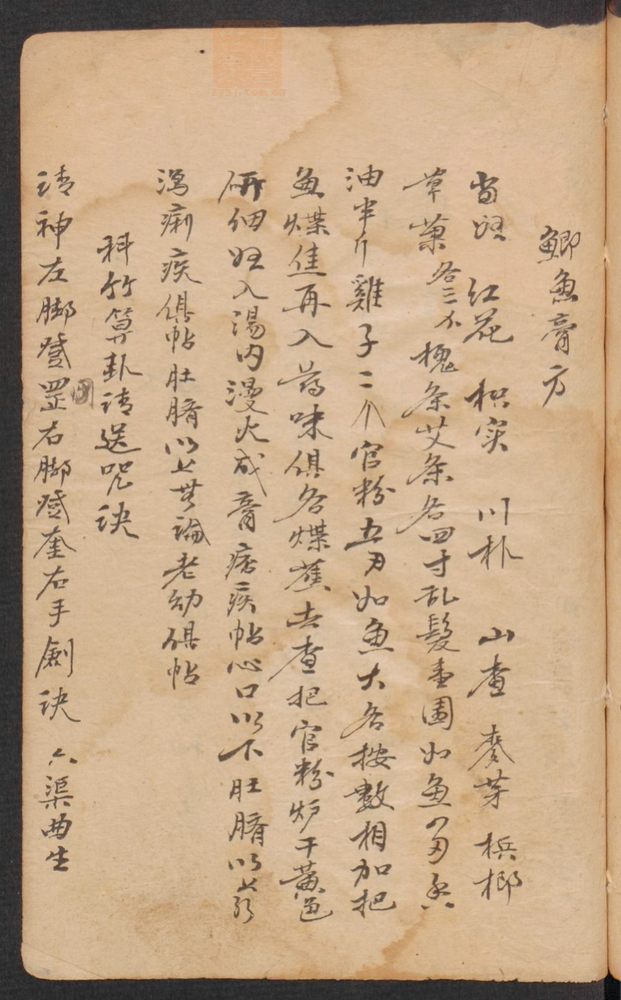 鯽魚膏方
當归 紅花 枳实 川朴 山查 麥芽 槟榔
草菓各三 槐条艾条各四寸乱髮壹團如魚
油半斤雞子二个官粉五如魚大各按數相加把
魚煤焦再入葯味俱各煤蕉去查把官粉炒干黃色
研细处入湯内漫火成膏 疾帖心口以下肚臍以上
瀉痢疾俱帖肚臍以上無論老幼俱帖
科竹算卦請送咒訣
請神左脚登罡右脚登奎右手劍诀 六渠曲生